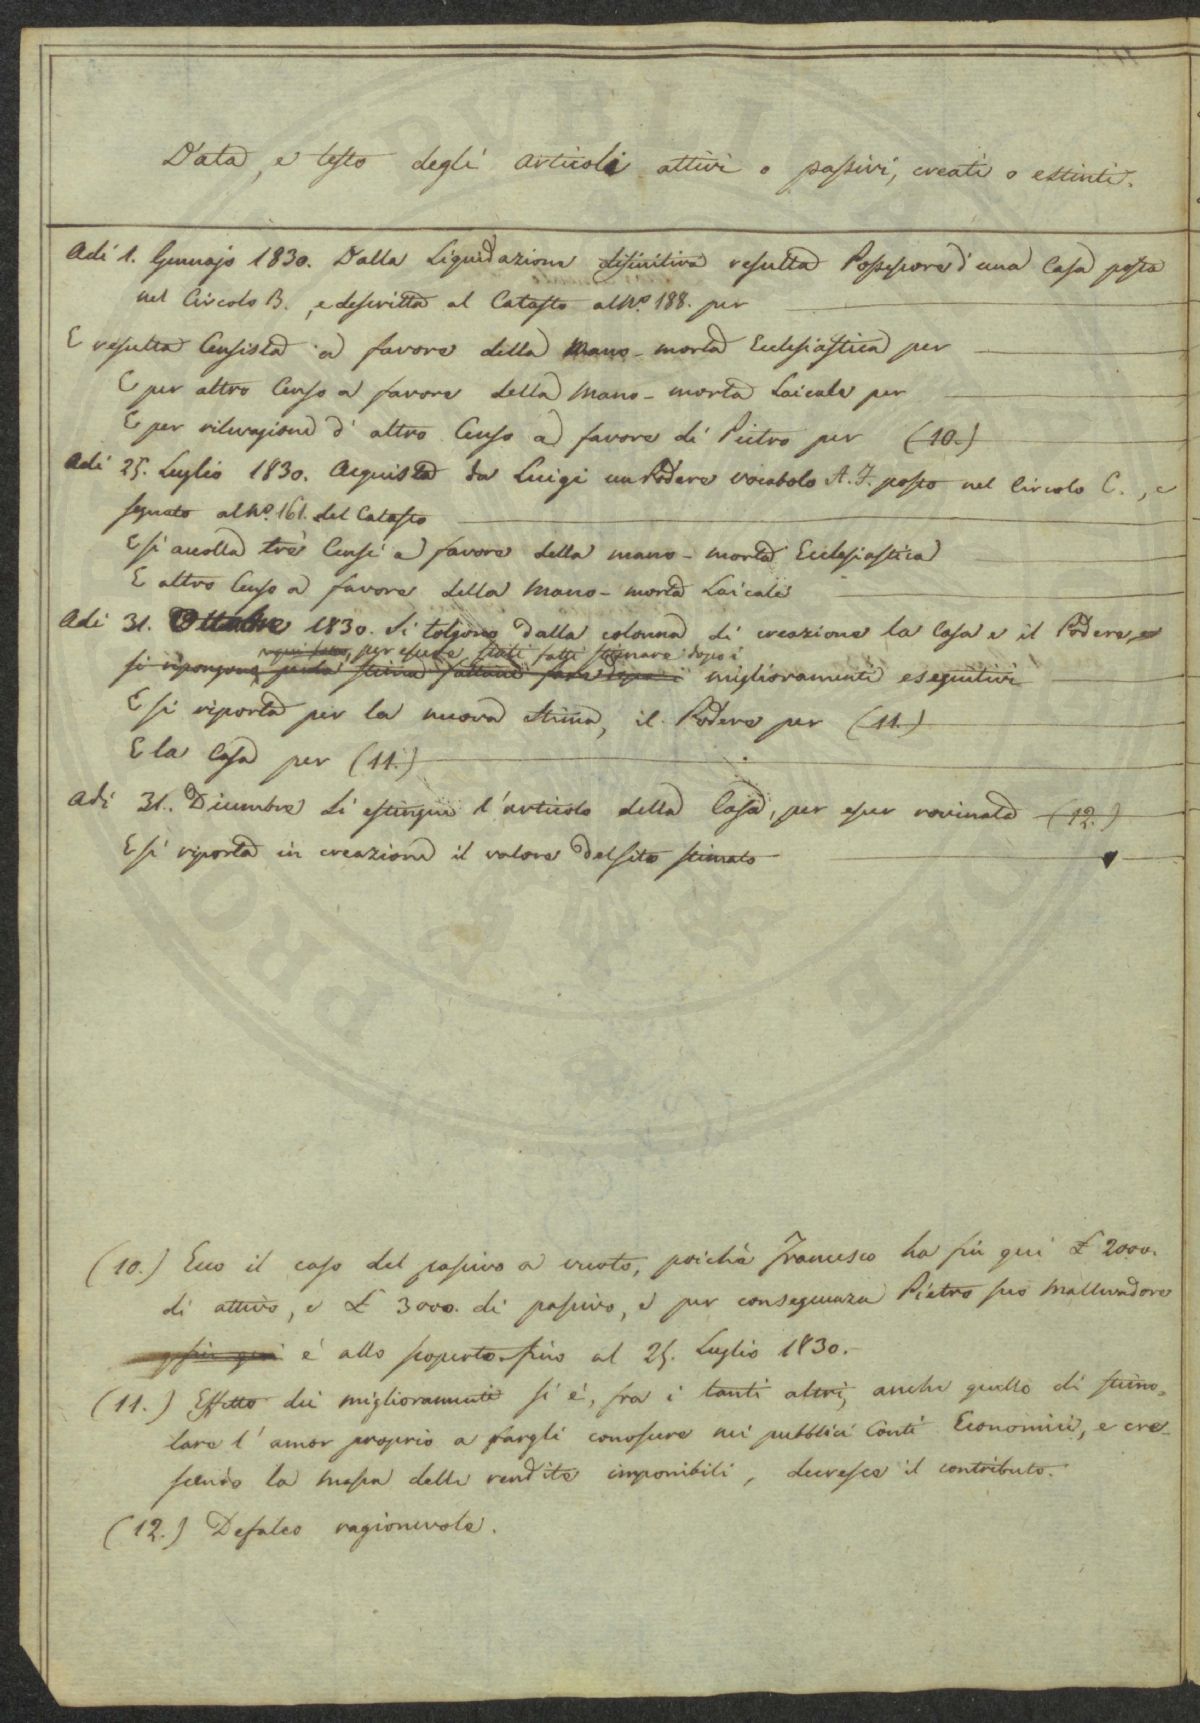 Data, e testo degli articoli attivi o passivi, creati o estinti.
Adi 1. Gennajo 1830. Dalla Liquidazione difinitiva resulta Possessore d'una Casa posta
nel Circolo B., e descritta al Catasto al N.º 188. per
E resulta Censista a favore della Mano-morta Ecclesiastica per
E per altro Censo a favore della Mano-morta Laicale per
E per rilevazione d'altro Censo a favore di Pietro per (10.)
Adi 25. Luglio 1830. Acquista da Luigi un Podere vocabolo A. F. posto nel Circolo C., e
segnato al N.º 161. del Catasto
E si accolla trè Censi a favore della mano-morta Ecclesiastica
E altro Censo a favore della Mano-morta Laicale
Adi 31. Ottobre 1830. Si tolgono dalla colonna di creazione la Casa e il Podere, e
per essere stati fatti stimare dopo i
si ripongono per la stima fattane fare dopo i miglioramenti eseguitivi
E si riporta per la nuova stima, il Podere per (11.)
E la Casa per (11.)
Adi 31. Dicembre Si estingue l'articolo della Casa, per esser rovinata (12.)
E si riporta in creazione il valore del sito stimato
(10.) Ecco il caso del passivo a vuoto, poichè Francesco ha fin qui £ 2000.
di attivo, e £ 3000. di passivo, e per conseguenza Pietro suo Mallevadore
fin qui è allo scoperto fino al 25. Luglio 1830.
(11.) Effetto dei miglioramenti si è, fra i tanti altri, anche quello di stimo=
lare l'amor proprio a fargli conoscere nei pubblici Conti Economici, e cre=
scendo la massa delle rendite imponibili, decresce il contributo.
(12.) Defalco ragionevole.